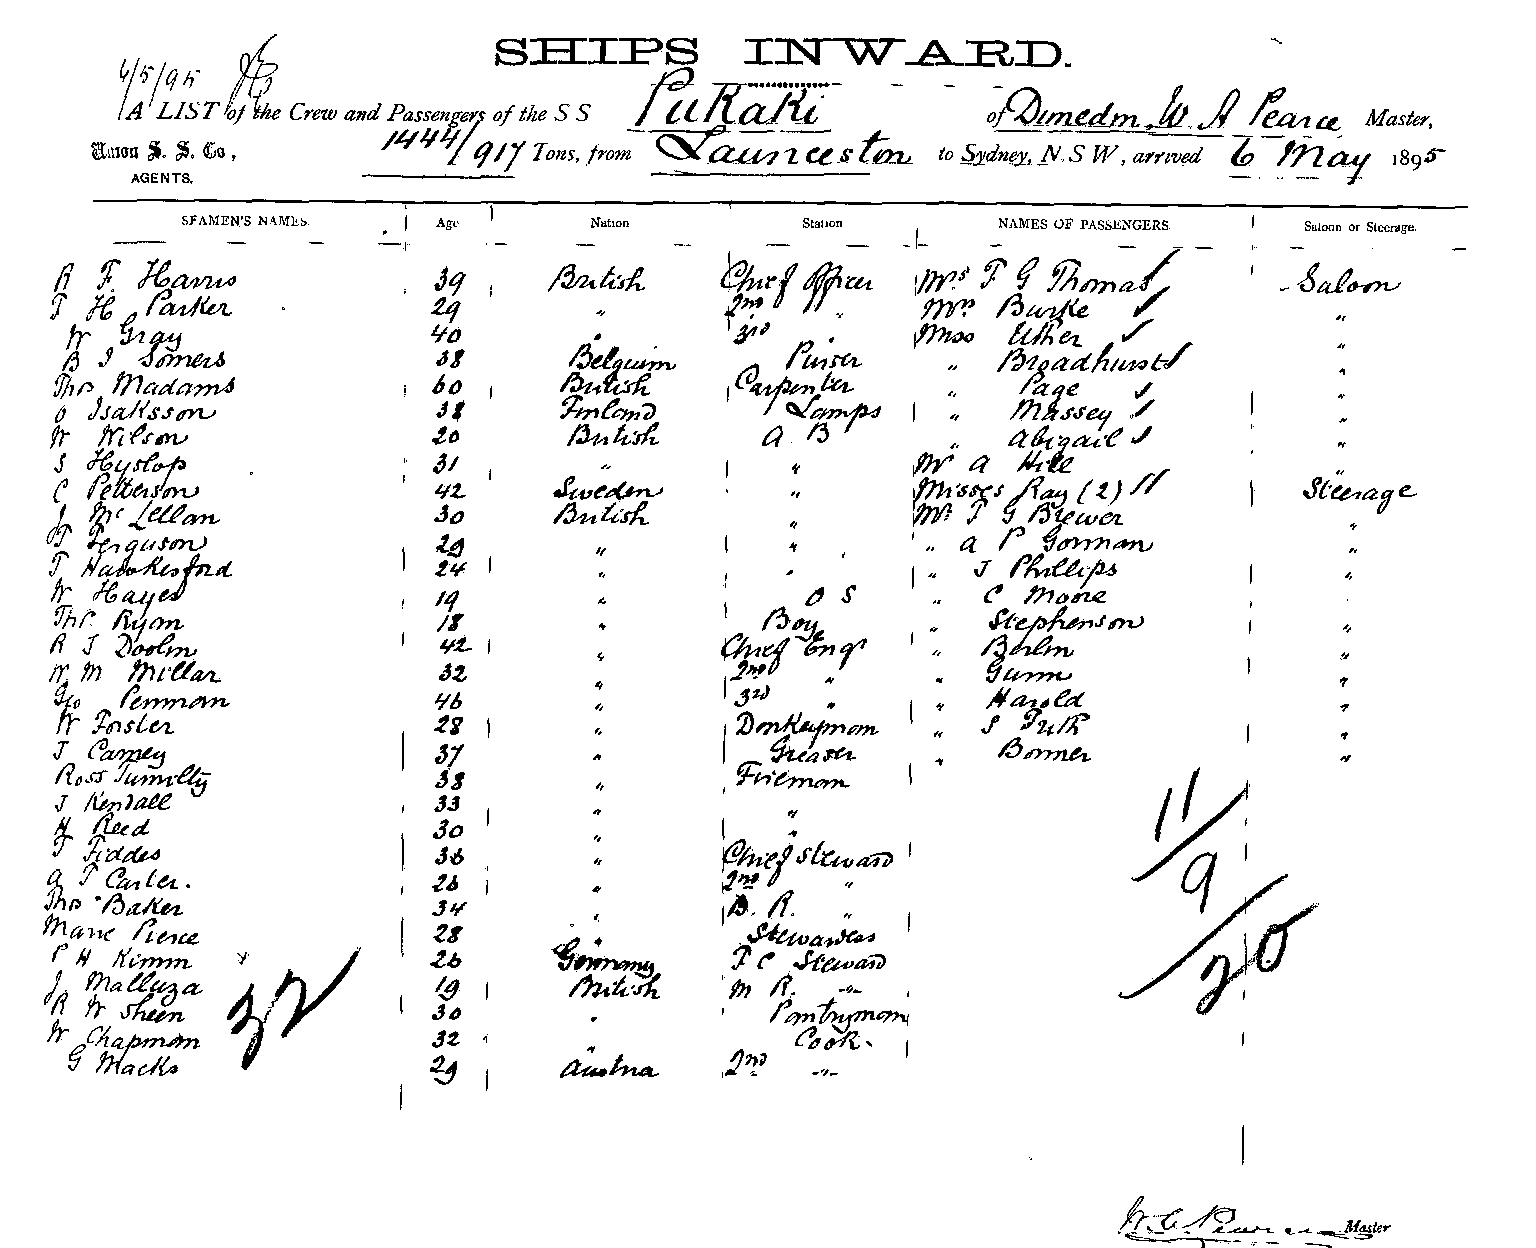 SHIPS INWARD.
6/5/95
A LIST of the Crew and Passengers of the S S Pukaki of Dunedin, W. A Pearce Master,
Union S. S. Co, 1444/917 Tons, from Launceston to Sydney, N. S W, arrived 6 May 1895
AGENTS.
SEAMEN'S NAMES. Age Nation Station NAMES OF PASSENGERS. Saloon or Steerage.
R F. Harris 39 British Chief Officer Mrs F G Thomas Saloon
T H Parker 29 " 2nd " Mrs Burke "
W Gray 40 " 3rd " Miss Usher "
B J Somers 38 Belguim Purser " Broadhurst "
Thos Madams 60 British Carpenter " Page "
O Isaksson 38 Finland Lamps " Massey "
W Wilson 20 British A. B " Abigail "
S Hyslop 31 " " Mr A Hill "
C Petterson 42 Sweden " Misses Ray (2) Steerage
J McLellan 30 British " Mr T G Brewer "
Ferguson 29 " " " A P Gorman "
T Hawkesford 24 " " " J Phillips "
W Hayes 19 " O S " C Moore
Thos Ryan 18 " Boy " Stephenson "
R J Doolin 42 " Chief Engr " Berlin "
W M Millar 32 " 2nd " " Gunn "
Geo Penman 46 " 3rd " " Harold "
W Forster 28 " Donkeyman " S Frith "
J Carney 37 " Greaser " Bonner "
Ross Tumilty 38 " Fireman
J Kendall 33 " "
H Reed 30 " "
F Fiddes 36 " Chief Steward
A T Carter. 26 " 2nd "
Thos Baker 34 " B. R. "
Marie Pierce 28 " Stewardess
P H Kimm 26 Germany F C Steward
J Malluza 19 British M R. -"-
R W Sheen 30 " Pantryman
W Chapman 32 " Cook.
G Macks 29 Austria 2nd -"-
32
11/
9/
20
Pearce Master